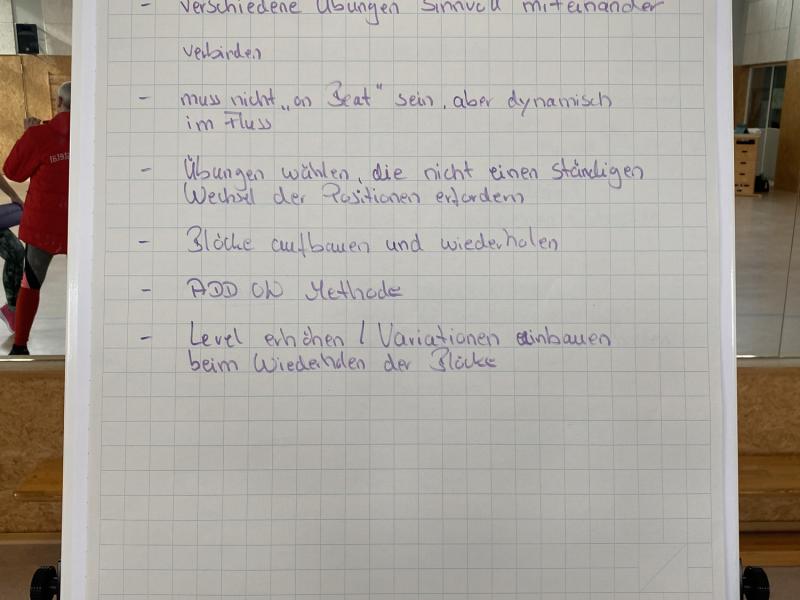 - verschiedene Übungen sinnvoll miteinander
verbinden
- muss nicht „on Beat" sein, aber dynamisch
im Fluss
- Übungen wählen, die nicht einen ständigen
Wechsel der Positionen erfordern
- Blöcke aufbauen und wiederholen
- ADD ON Methode
- Level erhöhen / Variationen einbauen
beim Wiederholen der Blöcke